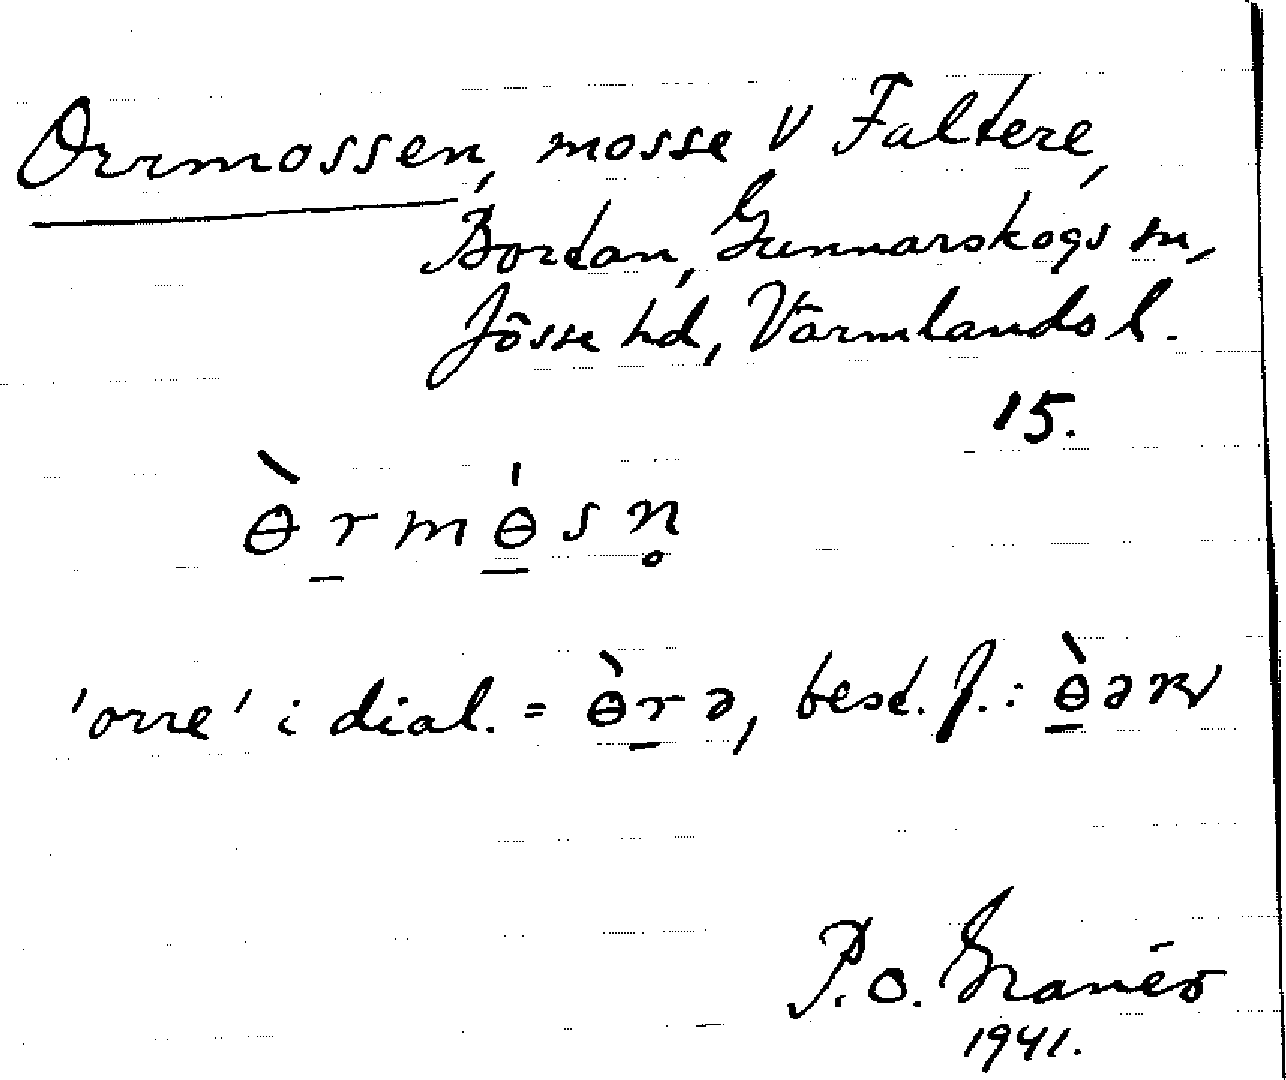 Orrmossen, mosse V Faltere,
Bortan, Gunnarskogs sn,
Jösse hd, Värmlands l.
15.
ɵ̀r̲mɵ̲́sn̥
'orre' i dial. = ɵ̀r̲ə, best. f.: ɵ̲̀ən
P.O. Granér
1941.